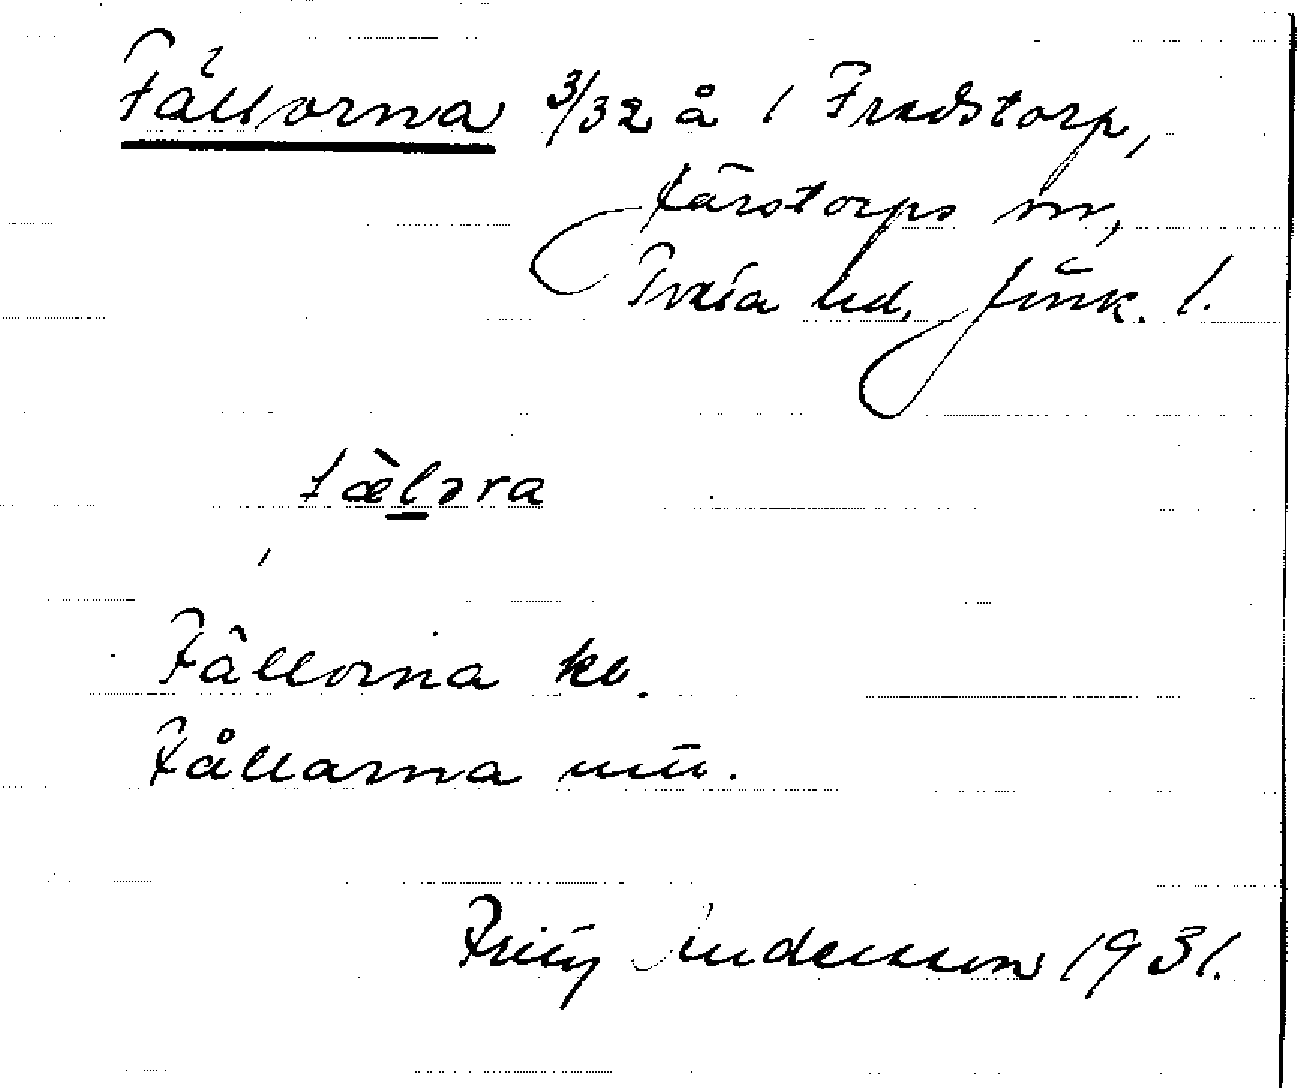 Fällorna 3/32 å i Fredstorp,
Färstorps sn,
Tveta hd, Jönk. l.
fæ̀lɔra
Fällorna kb.
Fållarna utt.
Fritz Andersson 1931.